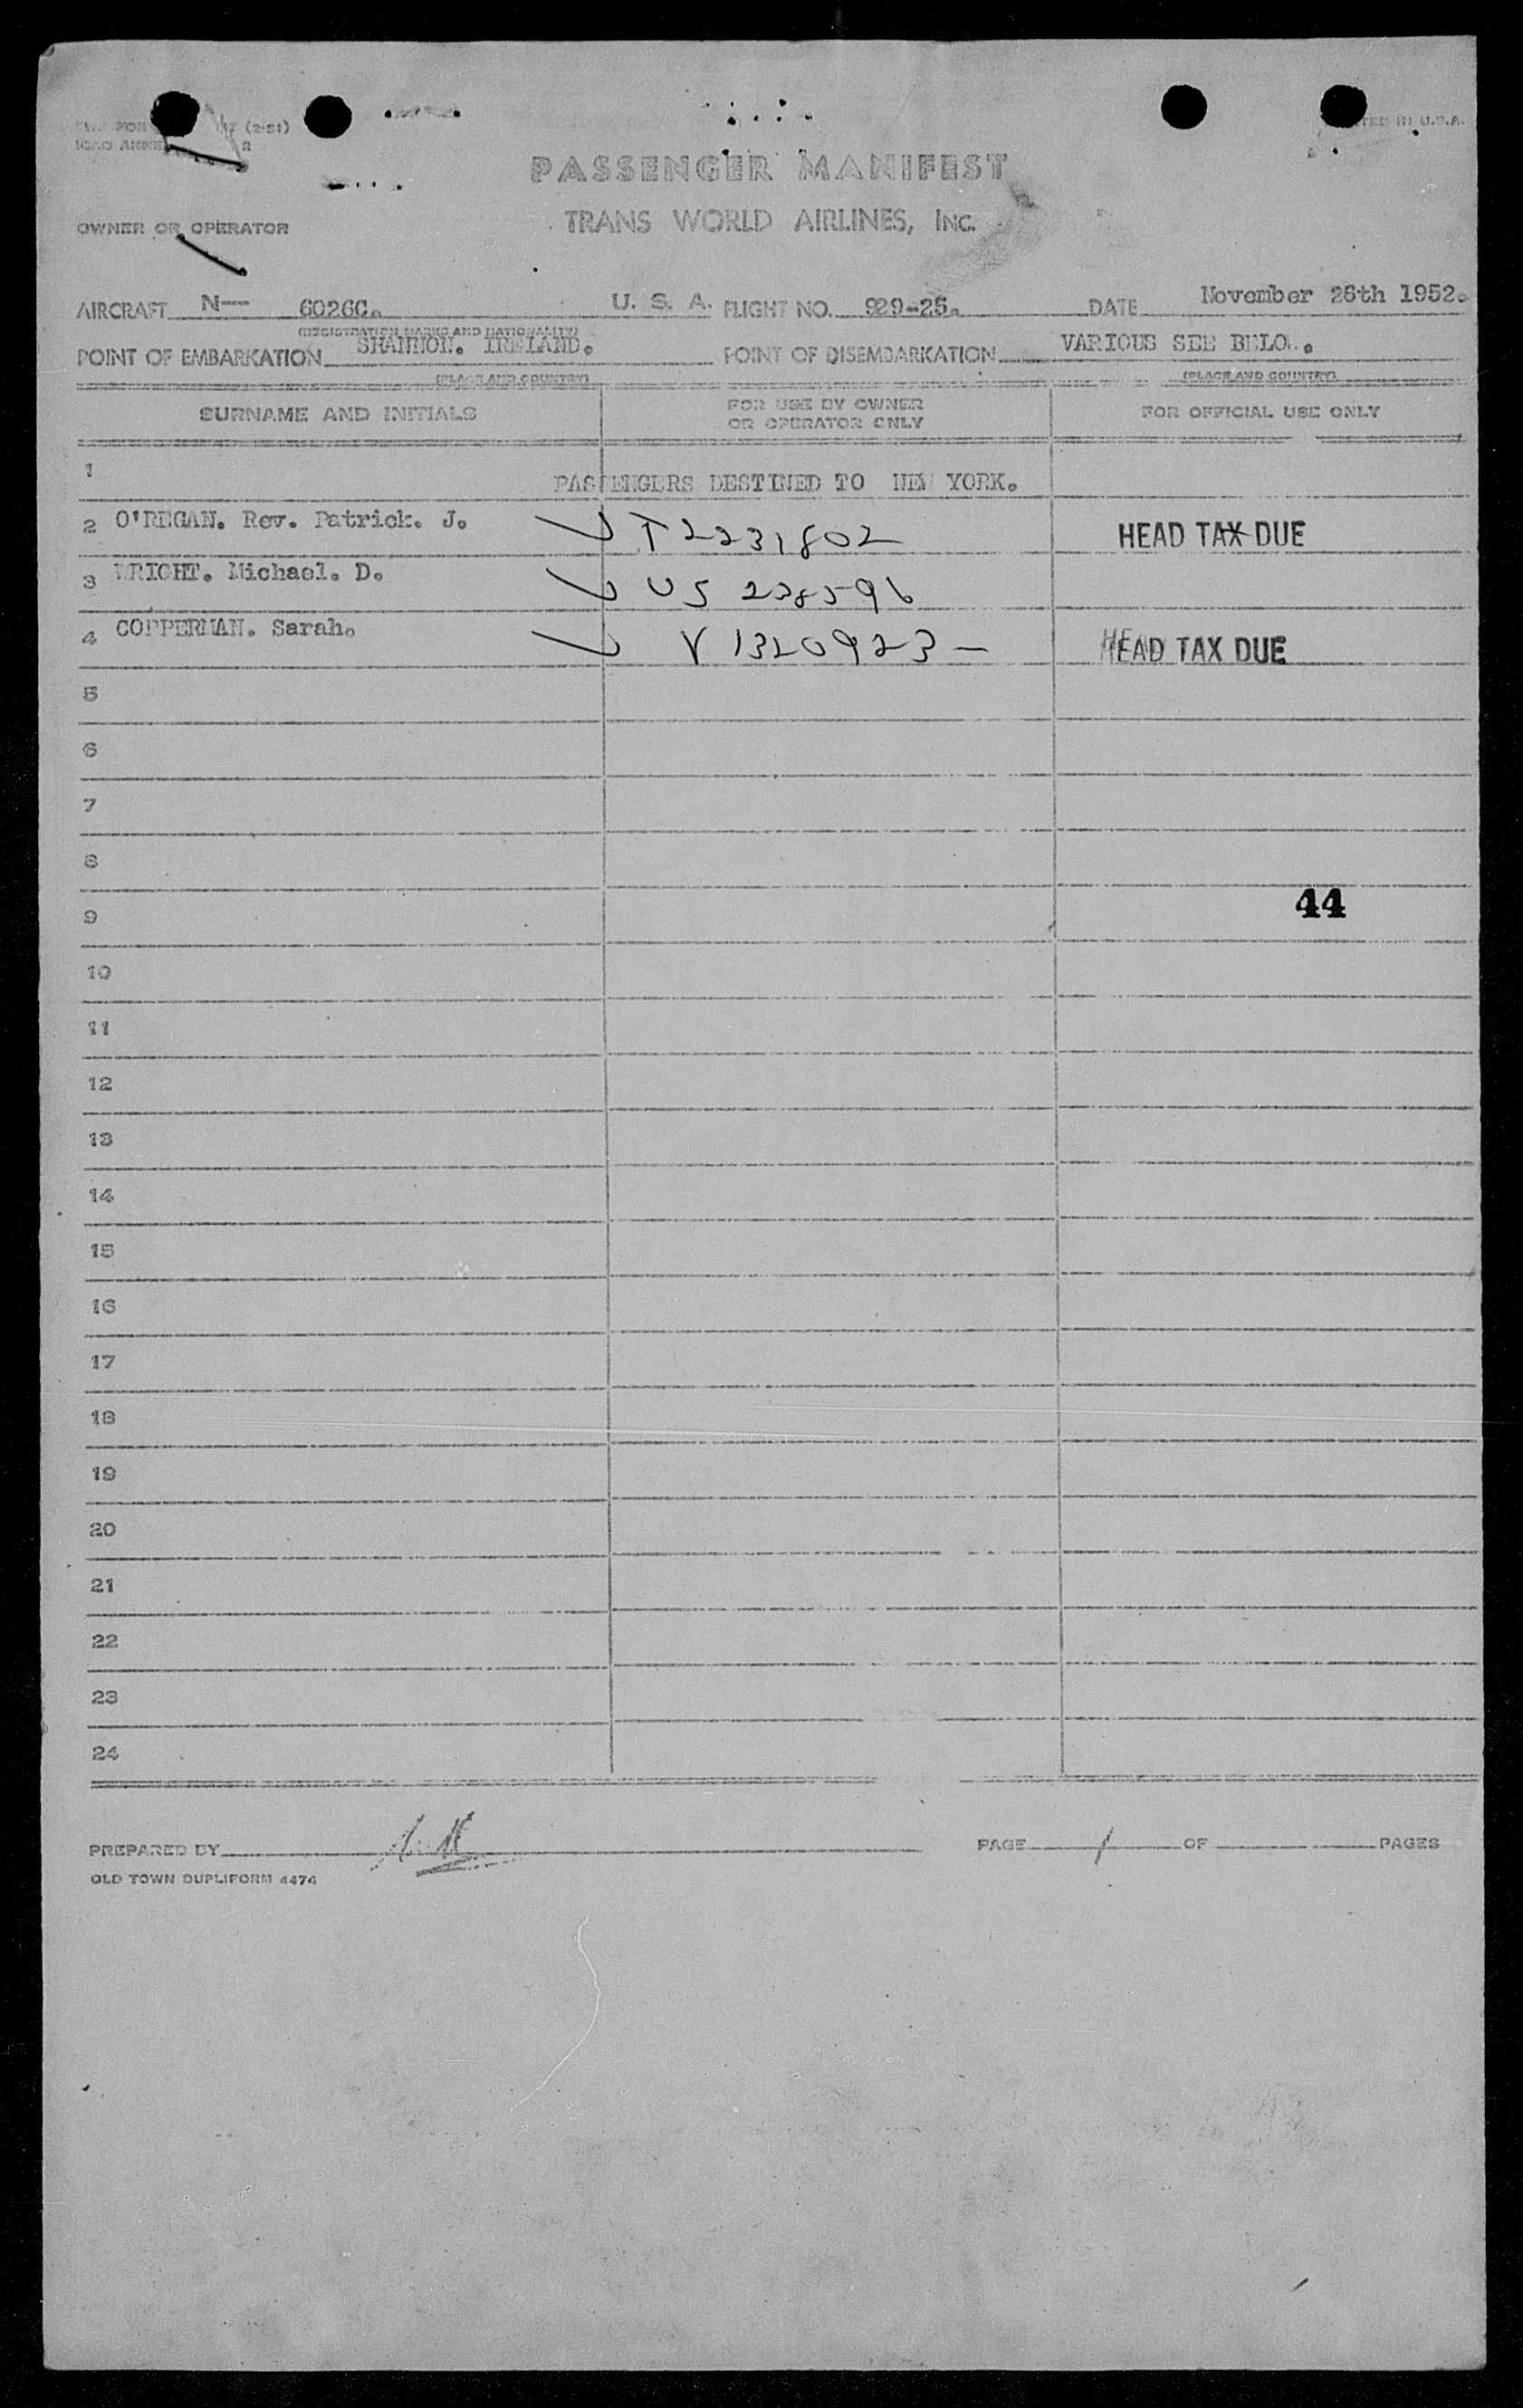 (2-51)
PASSENGER MANIFEST
TRANS WORLD AIRLINES, INC.
OWNER OR OPERATOR
AIRCRAFT N— 6026C. U. S. A. FLIGHT NO. 929-25. DATE November 26th 1952.
(REGISTRATION MARKS AND NATIONALITY)
POINT OF EMBARKATION SHANNON. IRELAND. POINT OF DISEMBARKATION VARIOUS SEE BELOW.
(PLACE AND COUNTRY) (PLACE AND COUNTRY)
SURNAME AND INITIALS FOR USE BY OWNER OR OPERATOR ONLY FOR OFFICIAL USE ONLY
1 PASSENGERS DESTINED TO NEW YORK.
2 O'REGAN. Rev. Patrick. J. T2231802 HEAD TAX DUE
3 WRIGHT. Michael. D. US 238596
4 COPPERMAN. Sarah. V 1320923 — HEAD TAX DUE
5
6
7
8
9 44
10
11
12
13
14
15
16
17
18
19
20
21
22
23
24
PREPARED BY PAGE 1 OF PAGES
OLD TOWN DUPLIFORM 4474